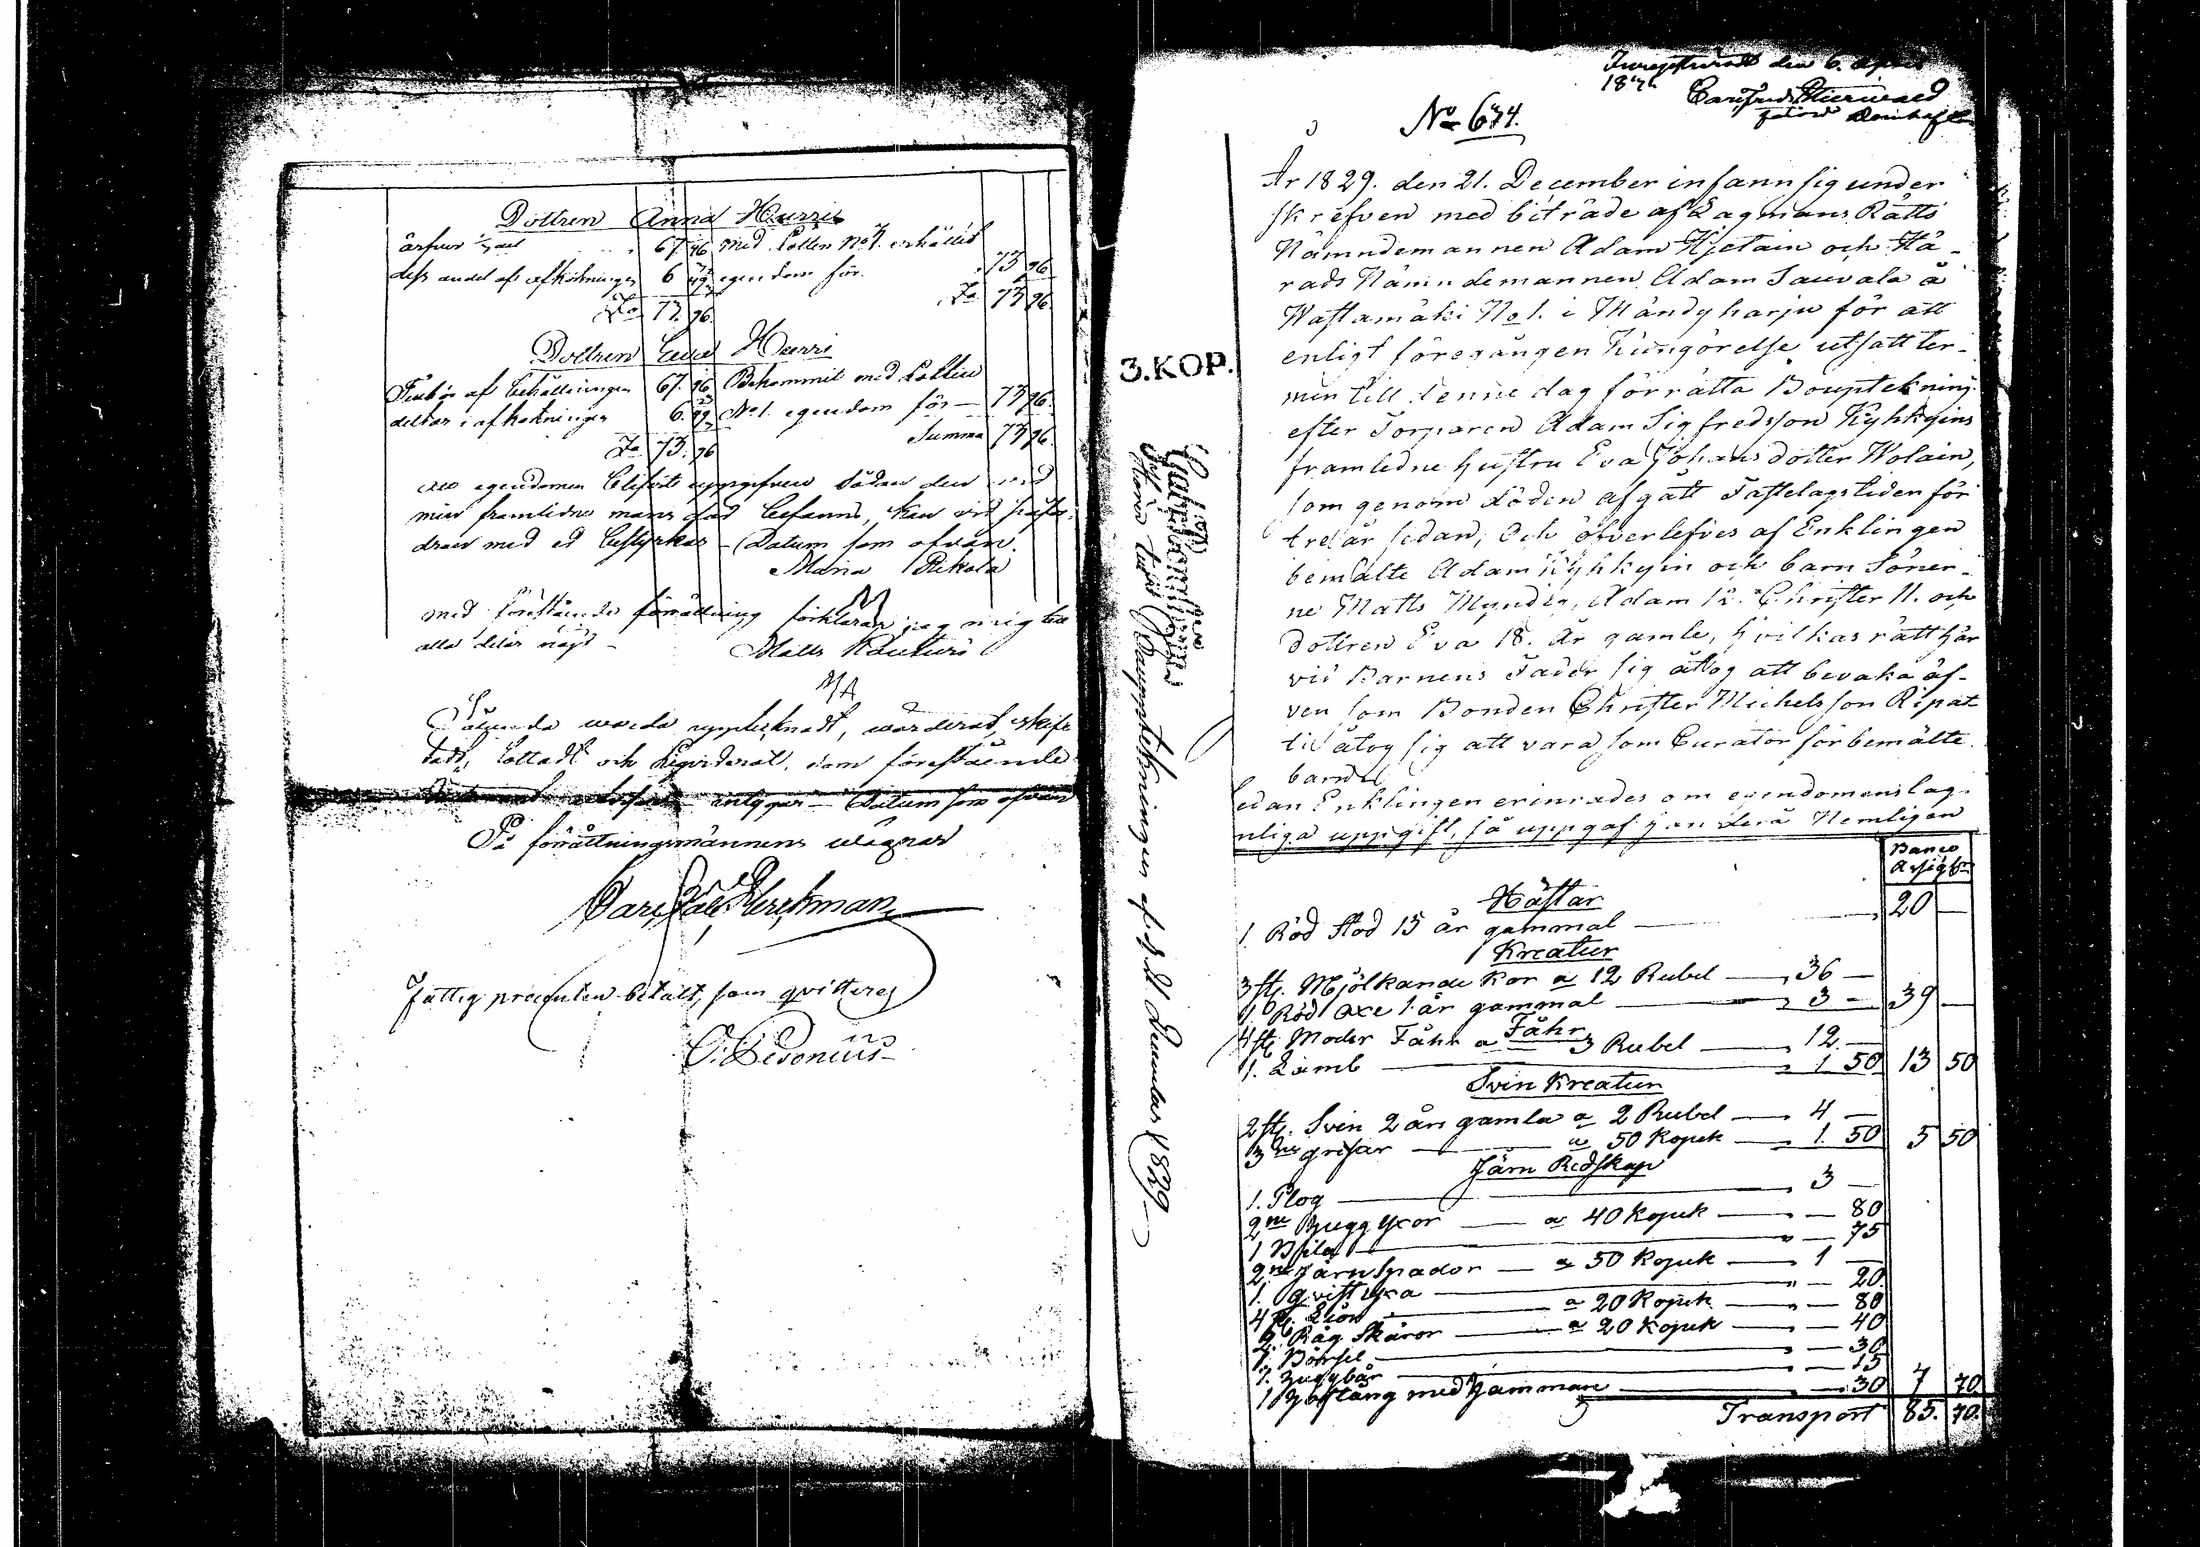 Dottren Anna Hurri
ärfver 1/7 del 67. 96 med Lotten No 1. erhållit
dess andel af afkortningen 6 egendom för 73 96
Sa 73. 96. Sa 73 96
Dottren Eva Hurri
Tillkör af behållningen 67. 96 Bekommit med Lotten
deltar i afkortningen 6. No 1. egendom för — 73 96.
Sa 73. 96 Summa 73 96.
egendomen blifvit uppgifven sådan den vid
min framlidne mans död befanns, kan vid
med ed bestyrkas — Datum som ofvan.
Maria Pekola
med förestående förrättning förklarar jag mig till
alla delar nöjd —
Matts
Sålunda vara upptecknadt, värderat, skif-
tadt, lottadt och liqviderat, som förestående
intygar — Datum som ofvan
På förrättningsmännens vägnar
Carl
Fattig procenten betalt, som qvitteras
Inregistrerad den 6. April
No 674.
3.KOP.
Bouppteckningen af d. 21 December 1829
År 1829. den 21. December infann sig under-
skrefven med biträde af Lagmans Rätts
Nämndemannen Adam Hjetain och Hä-
rads Nämndemannen Adam Sauvala å
Wastamäki No 1. i Mändyharju för att
enligt föregången Kungörelse utsatt ter-
min till denne dag förrätta Bouptekning
efter Torparen Adam Sigfredsson Kyhkyins
framledne hustru Eva Johansdotter Wolain,
som genom döden afgått Fastelagstiden för
tre år sedan, och öfverlefves af Enklingen
bemälte Adam Kyhkyin och barn Söner-
ne Matts Myndig, Adam 12. Christer 11. och
dottren Eva 18. År gamle, hvilkas rätt här
vid Barnens Fader sig åtog att bevaka äf-
ven som Bonden Christer Michelsson Ripat
ti åtog sig att vara som Curator för bemälte
barn
Sedan Enklingen erinrades om egendomens lag-
enliga uppgift, så uppgaf han derå Nemligen
Banco
Assigter
Hästar
1. Röd stod 15 år gammal — 20 —
Kreatur
3 st. Mjölkande Kor a 12 Rubel — 36 —
1. Röd Oxe 1. år gammal — 3 — 39 —
Fåhr
4 st. Moder Fåhr a 3 Rubel — 12 —
1. Lamb — 1 50 13 50
Svin Kreatur
2 st. Svin 2 års gamla a 2 Rubel — 4 —
3 ne grisar — a 50 Kopek — 1. 50 5 50
Järn Redskap
1. Plog — 3 —
2 ne Huggyxor — a 40 Kopek — 80
1 Bila — 75
2 ne Järnspador — a 50 Kopek — 1 —
1. qvistyxa — 20.
4 st. Liar — a 20 Kopek — 80
2. Råg Skäror — a 20 Kopek — 40
1. Böhsel — 30
1. — 15
1 Hofstång med Hammare — 30 7 70
Transport 85. 70.